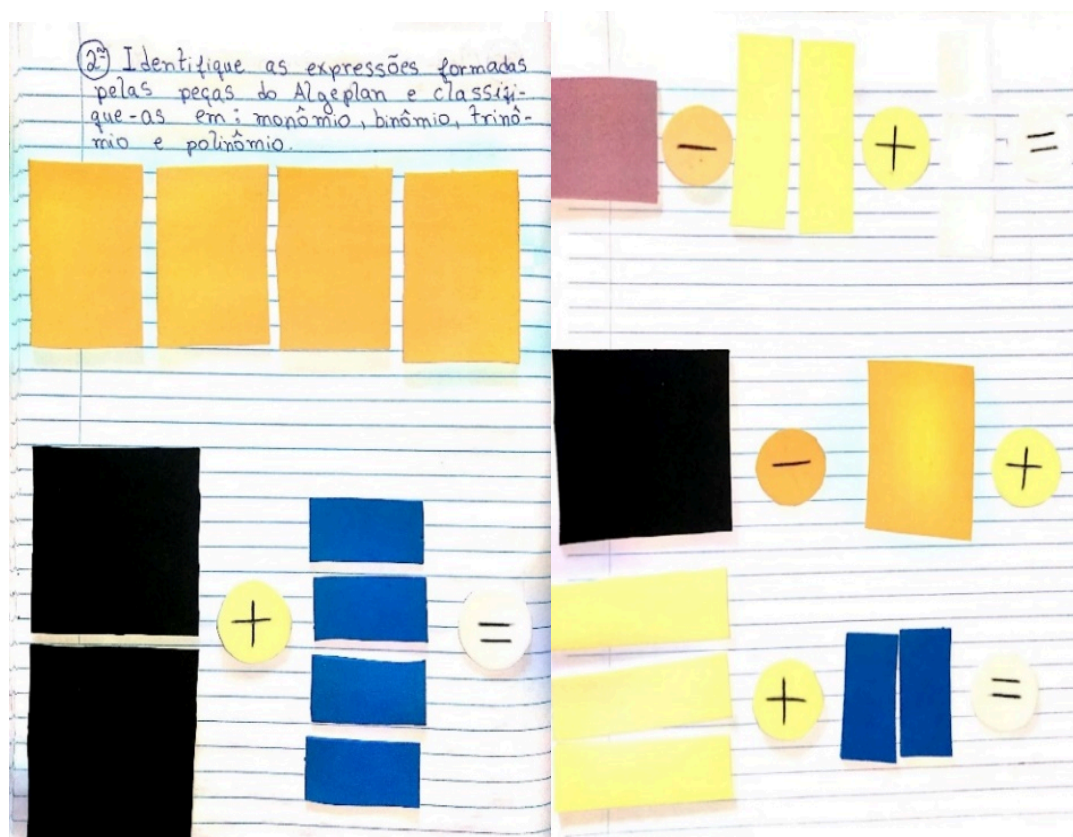 2ª) Identifique as expressões formadas
pelas peças do Algeplan e classifi-
que-as em: monômio, binômio, trinô-
mio e polinômio.
+ =
- + =
- +
+ =